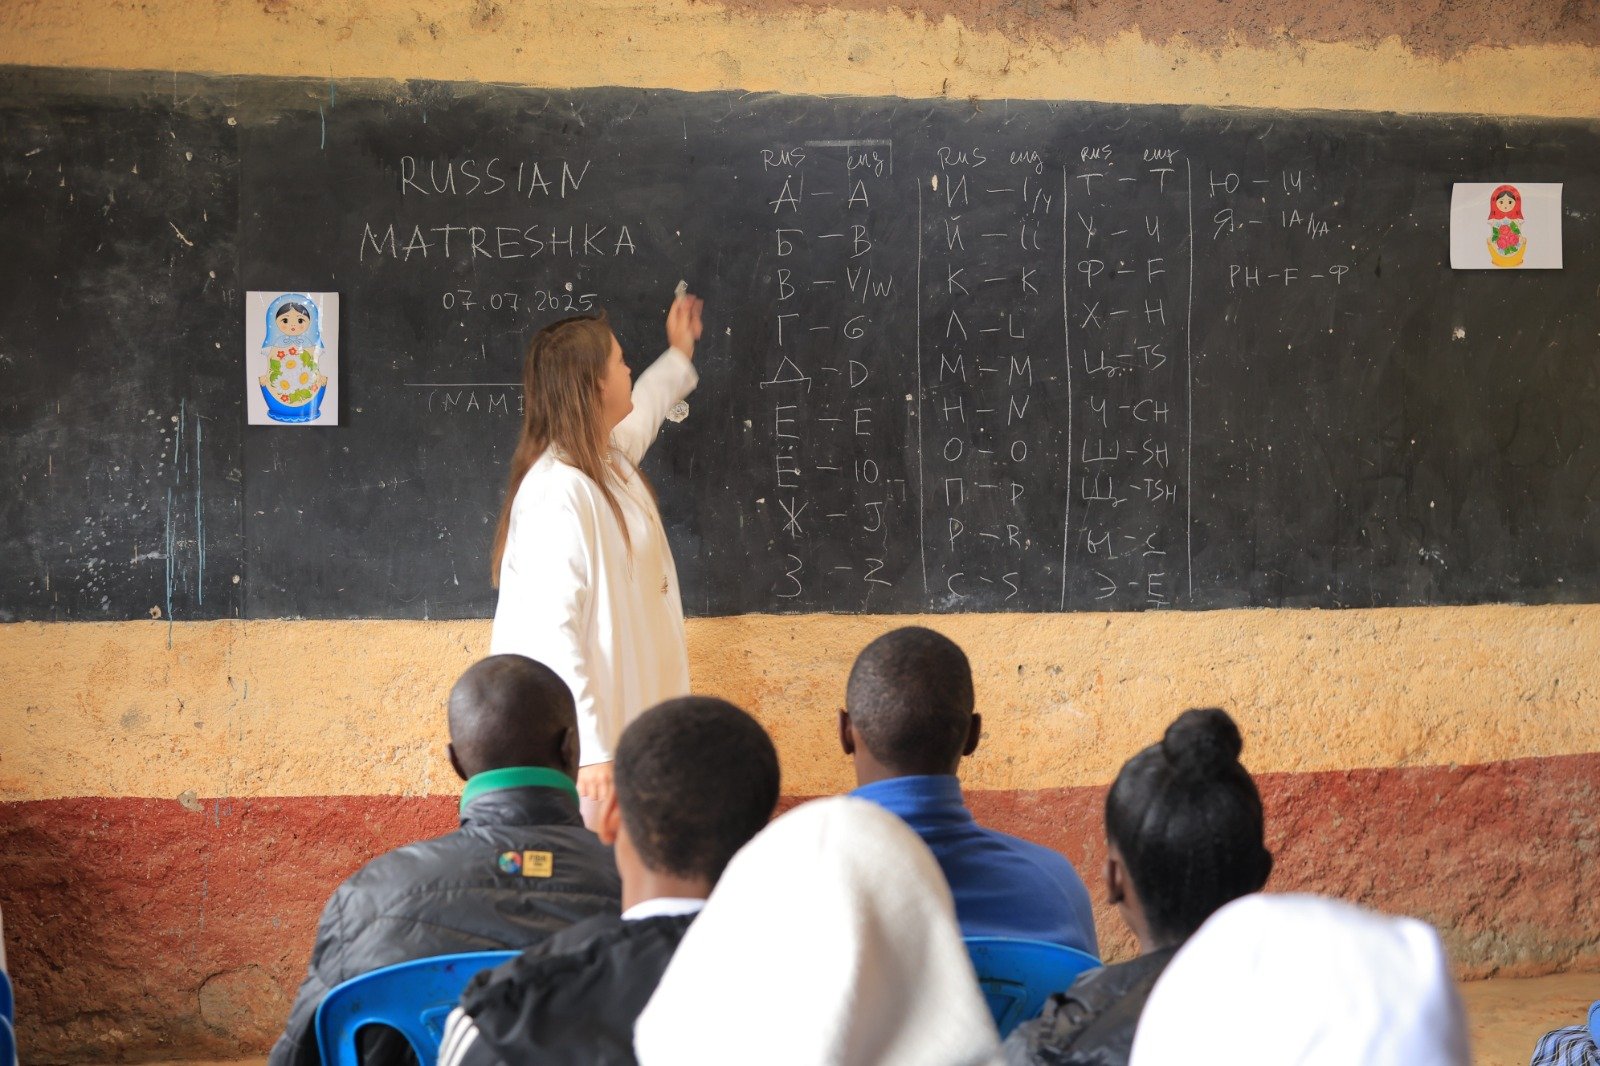 RUSSIAN
MATRESHKA
07.07.2025
(NAM
RUS eng
А – A
Б – B
В – V/W
Г – G
Д – D
Е – E
Ё – IO
Ж – J
З – Z
RUS eng
И – I/Y
Й – II
К – K
Л – L
М – M
Н – N
О – O
П – P
Р – R
С – S
RUS eng
Т – T
У – Y
Ф – F
Х – H
Ц – TS
Ч – CH
Ш – SH
Щ – TSH
Э – E
Ю – IU
Я – IA/YA
PH – F – Ф